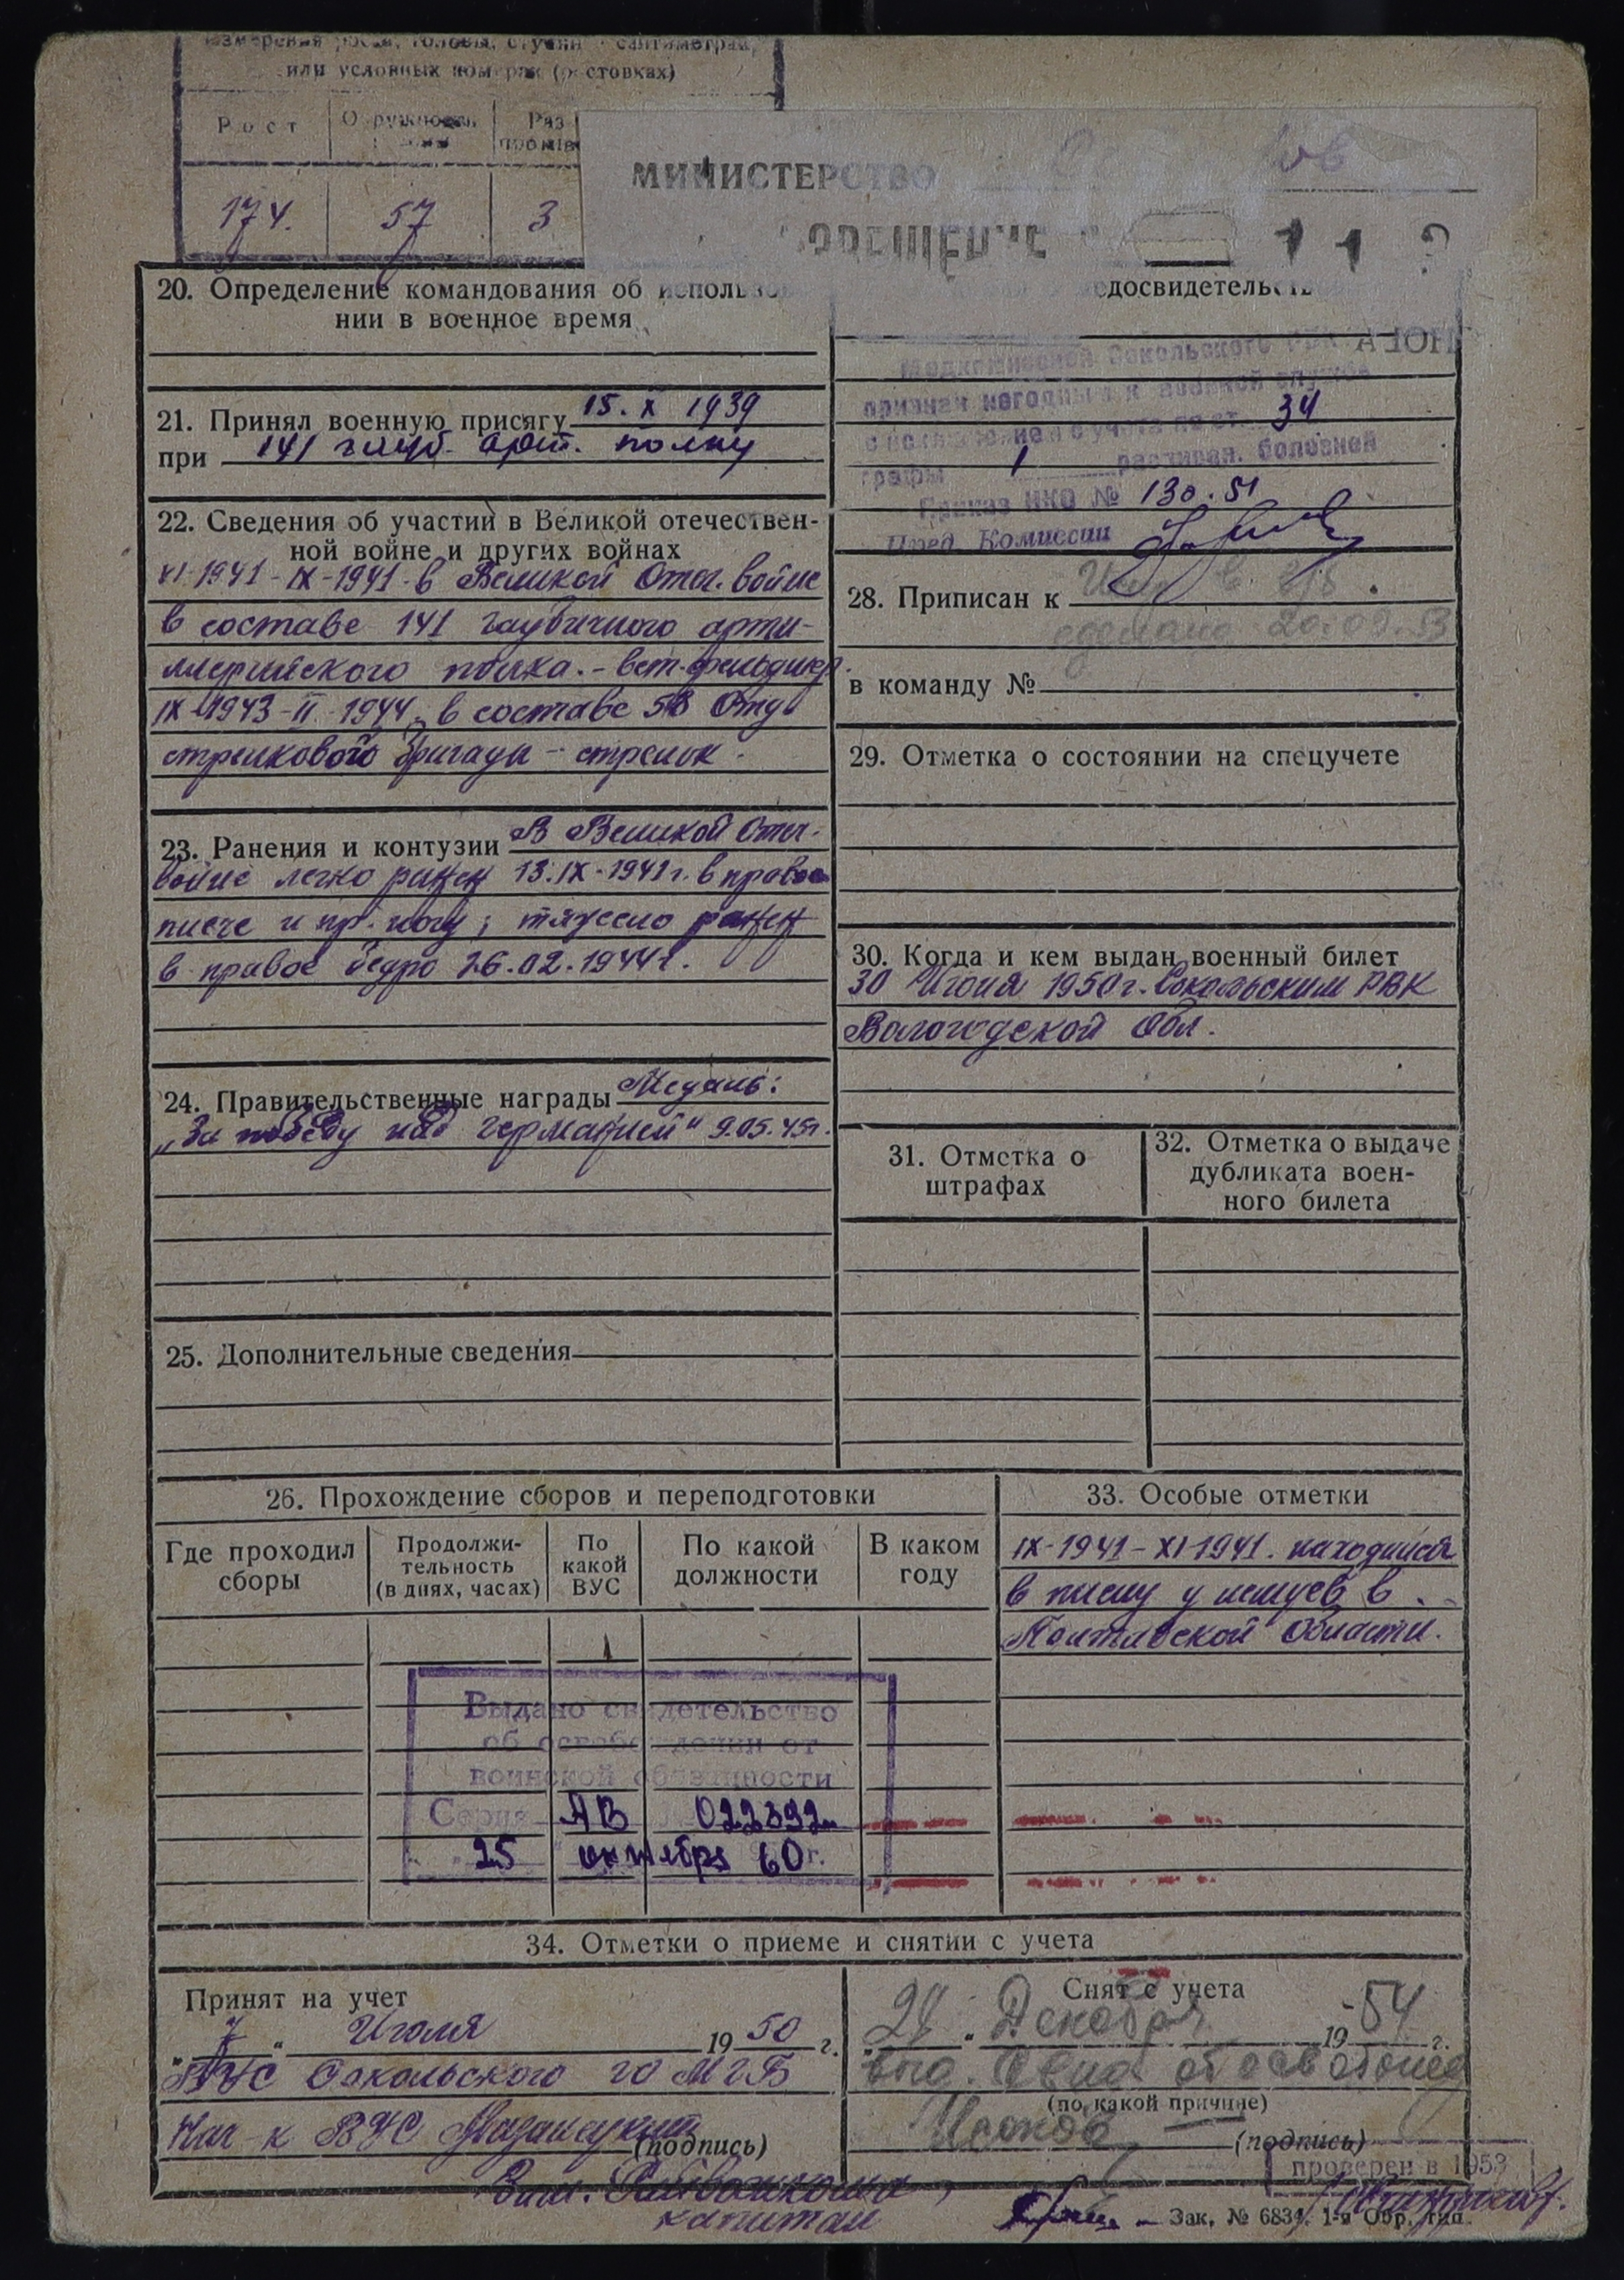 измерения роста, головы, ступни - сантиметрах,
или условных номерах (ростовках)
Рост
Окружность
Раз
174.
57
3
МИНИСТЕРСТВО
20. Определение командования об использова-
нии в военное время
21. Принял военную присягу 15. X 1939
при 141 гауб. арт. полку
22. Сведения об участии в Великой отечествен-
ной войне и других войнах
VI-1941-IX-1941 в Великой Отеч. войне
в составе 141 гаубичного арти-
ллерийского полка. - вет. фельдшер.
IX-1943-II-1944, в составе 58 Отд.
стрелкового бригады - стрелок.
23. Ранения и контузии В Великой Отеч.
войне легко ранен 13.IX-1941г. в правое
плече и пр. ногу; тяжело ранен
в правое бедро 26.02.1944г.
24. Правительственные награды Медаль:
„За победу над Германией" 9.05.45г.
25. Дополнительные сведения
едосвидетельст
Медкомиссией Сокольского РВК
признан негодным к военной службе
с исключением с учета по ст. 34
графы 1 расписан. болезней
Приказ НКО № 130.51
Пред. Комиссии
28. Приписан к
20.09.53
в команду №
29. Отметка о состоянии на спецучете
30. Когда и кем выдан военный билет
30 Июня 1950г. Сокольским РВК
Вологодской Обл.
31. Отметка о
штрафах
32. Отметка о выдаче
дубликата воен-
ного билета
26. Прохождение сборов и переподготовки
Где проходил
сборы
Продолжи-
тельность
(в днях, часах)
По
какой
ВУС
По какой
должности
В каком
году
33. Особые отметки
IX-1941-XI-1941. находился
в плену у немцев в
Полтавской области.
Выдано свидетельство
об освобождении от
воинской обязанности
Серия АВ 022892
25 октября 60г.
34. Отметки о приеме и снятии с учета
Принят на учет
„7" Июля 1950 г.
ВУС Сокольского го МГБ
Нач-к ВУС
(подпись)
капитан
Снят с учета
„24" Декабря 1954 г.
(по какой причине)
(подпись)
проверен в 1953
Зак. № 6834. 1-я Обр. тип.